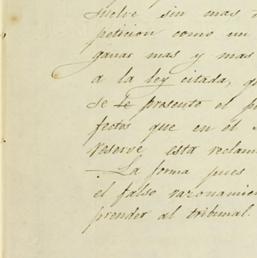 suelve sin mas
peticion como un
ganar mas y mas
a la ley citada,
se le presento el
fectos que en el
reserve esta reclam
La forma pues
el falso razonamie
prender al tribunal.